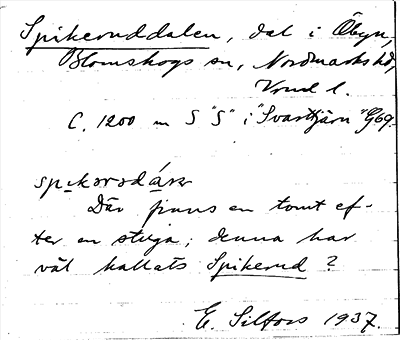 Spikeruddalen, dal i Öbyn,
Blomskogs sn, Nordmarks hd,
Vrml l.
C. 1200 m S "S" i "Svarttjärn" G69.
Där finns en tomt ef-
ter en stuga; denna har
väl kallats Spikerud ?
E. Silfors 1937.